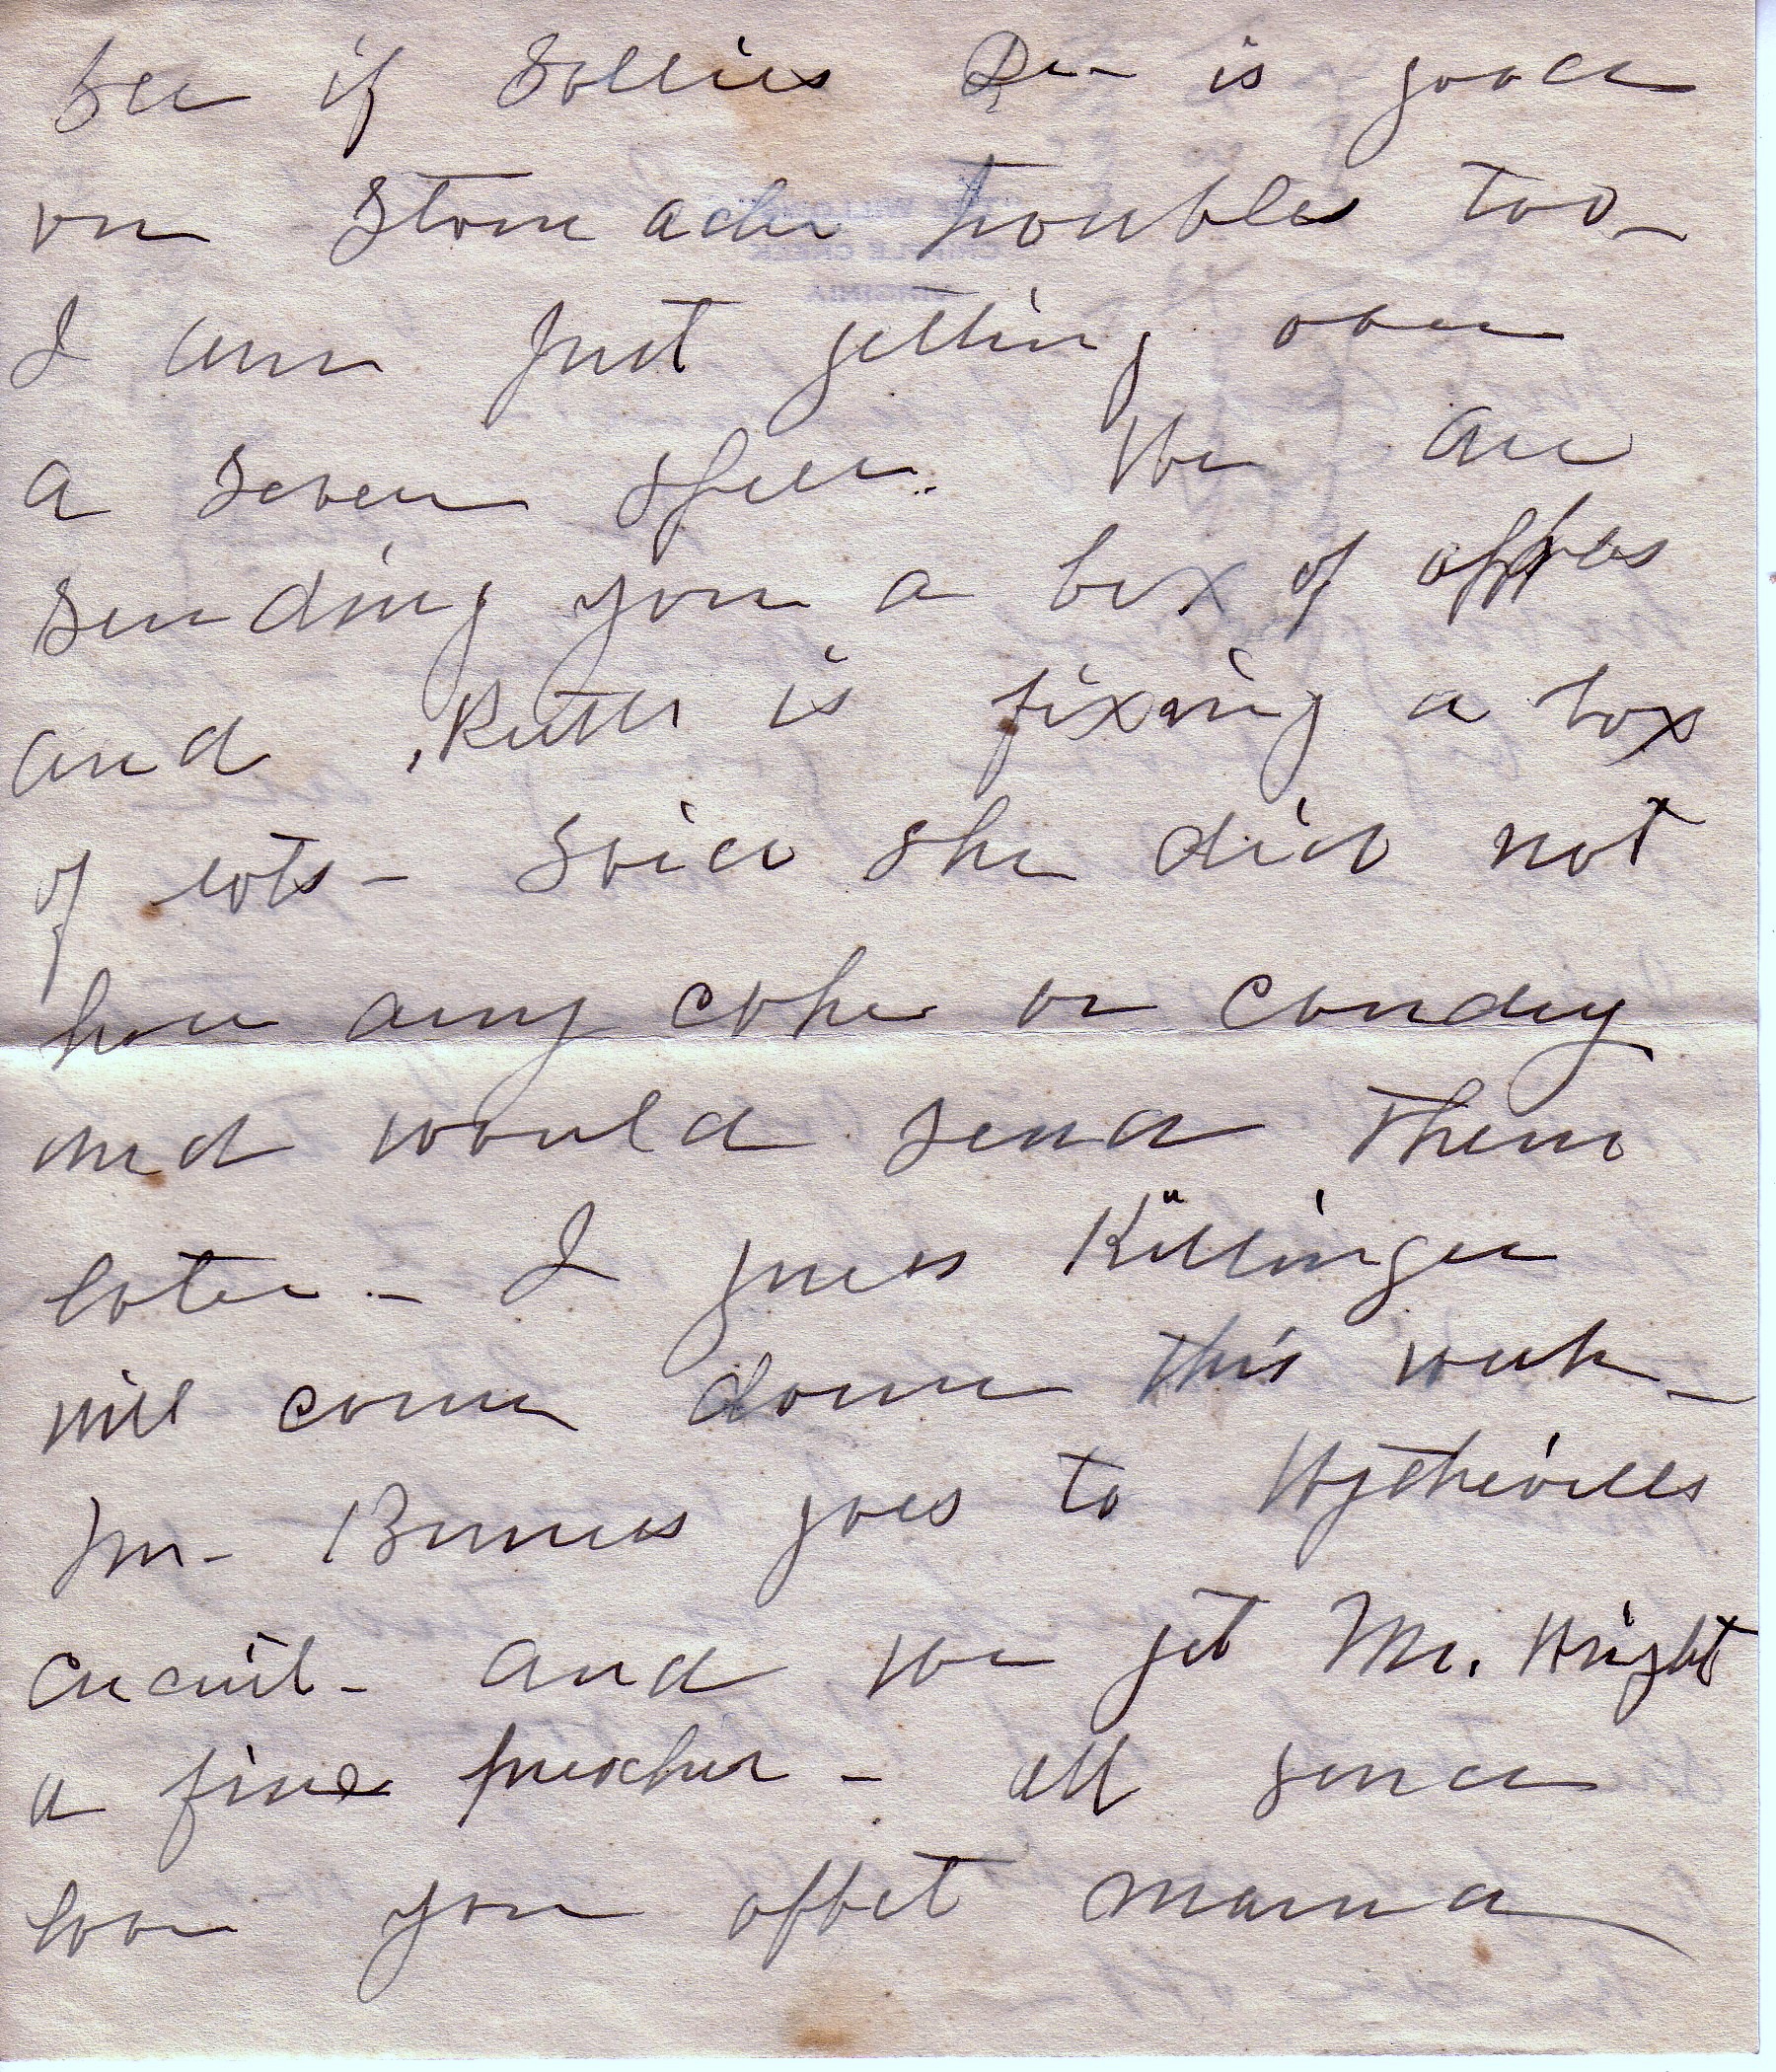 See if Sollies Dr- is good
on Stomach trouble too-
I am just getting over
a severe spell. We are
Sending you a box of apples
and Ruth is fixing a box
of lots- Said she did not
have any cake or candy
and would send them
later- I guess Killinger
will come down this week-
Mr- Burnes goes to Wytheville
circuit- and we get Mr. Wright
a fine preacher- all send
love you affet mama